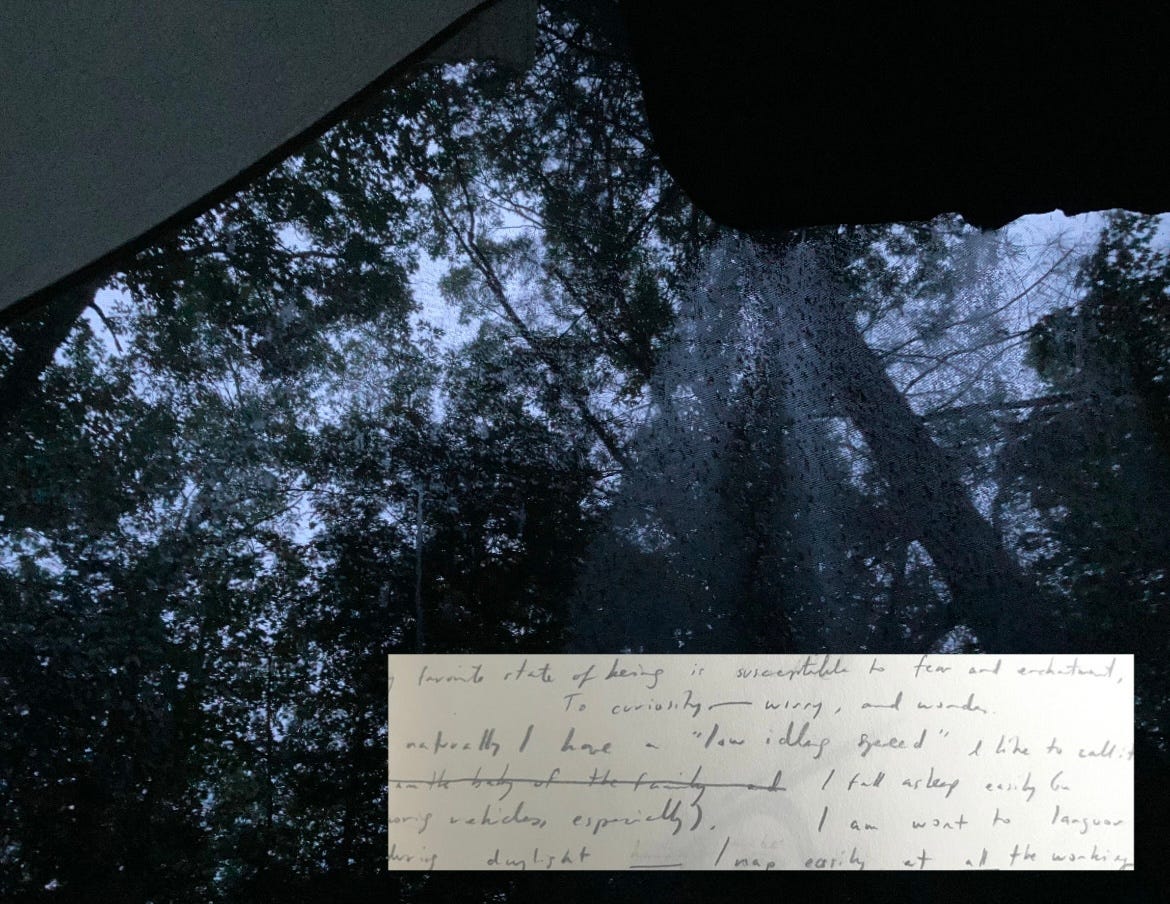 favorite state of being is susceptible to fear and enchantment,
To curiosity — worry, and wonder.
naturally I have a "low idling speed" I like to call it
am the baby of the family and I fall asleep easily (in
moving vehicles, especially). I am wont to languor
during daylight I nap easily at all the working